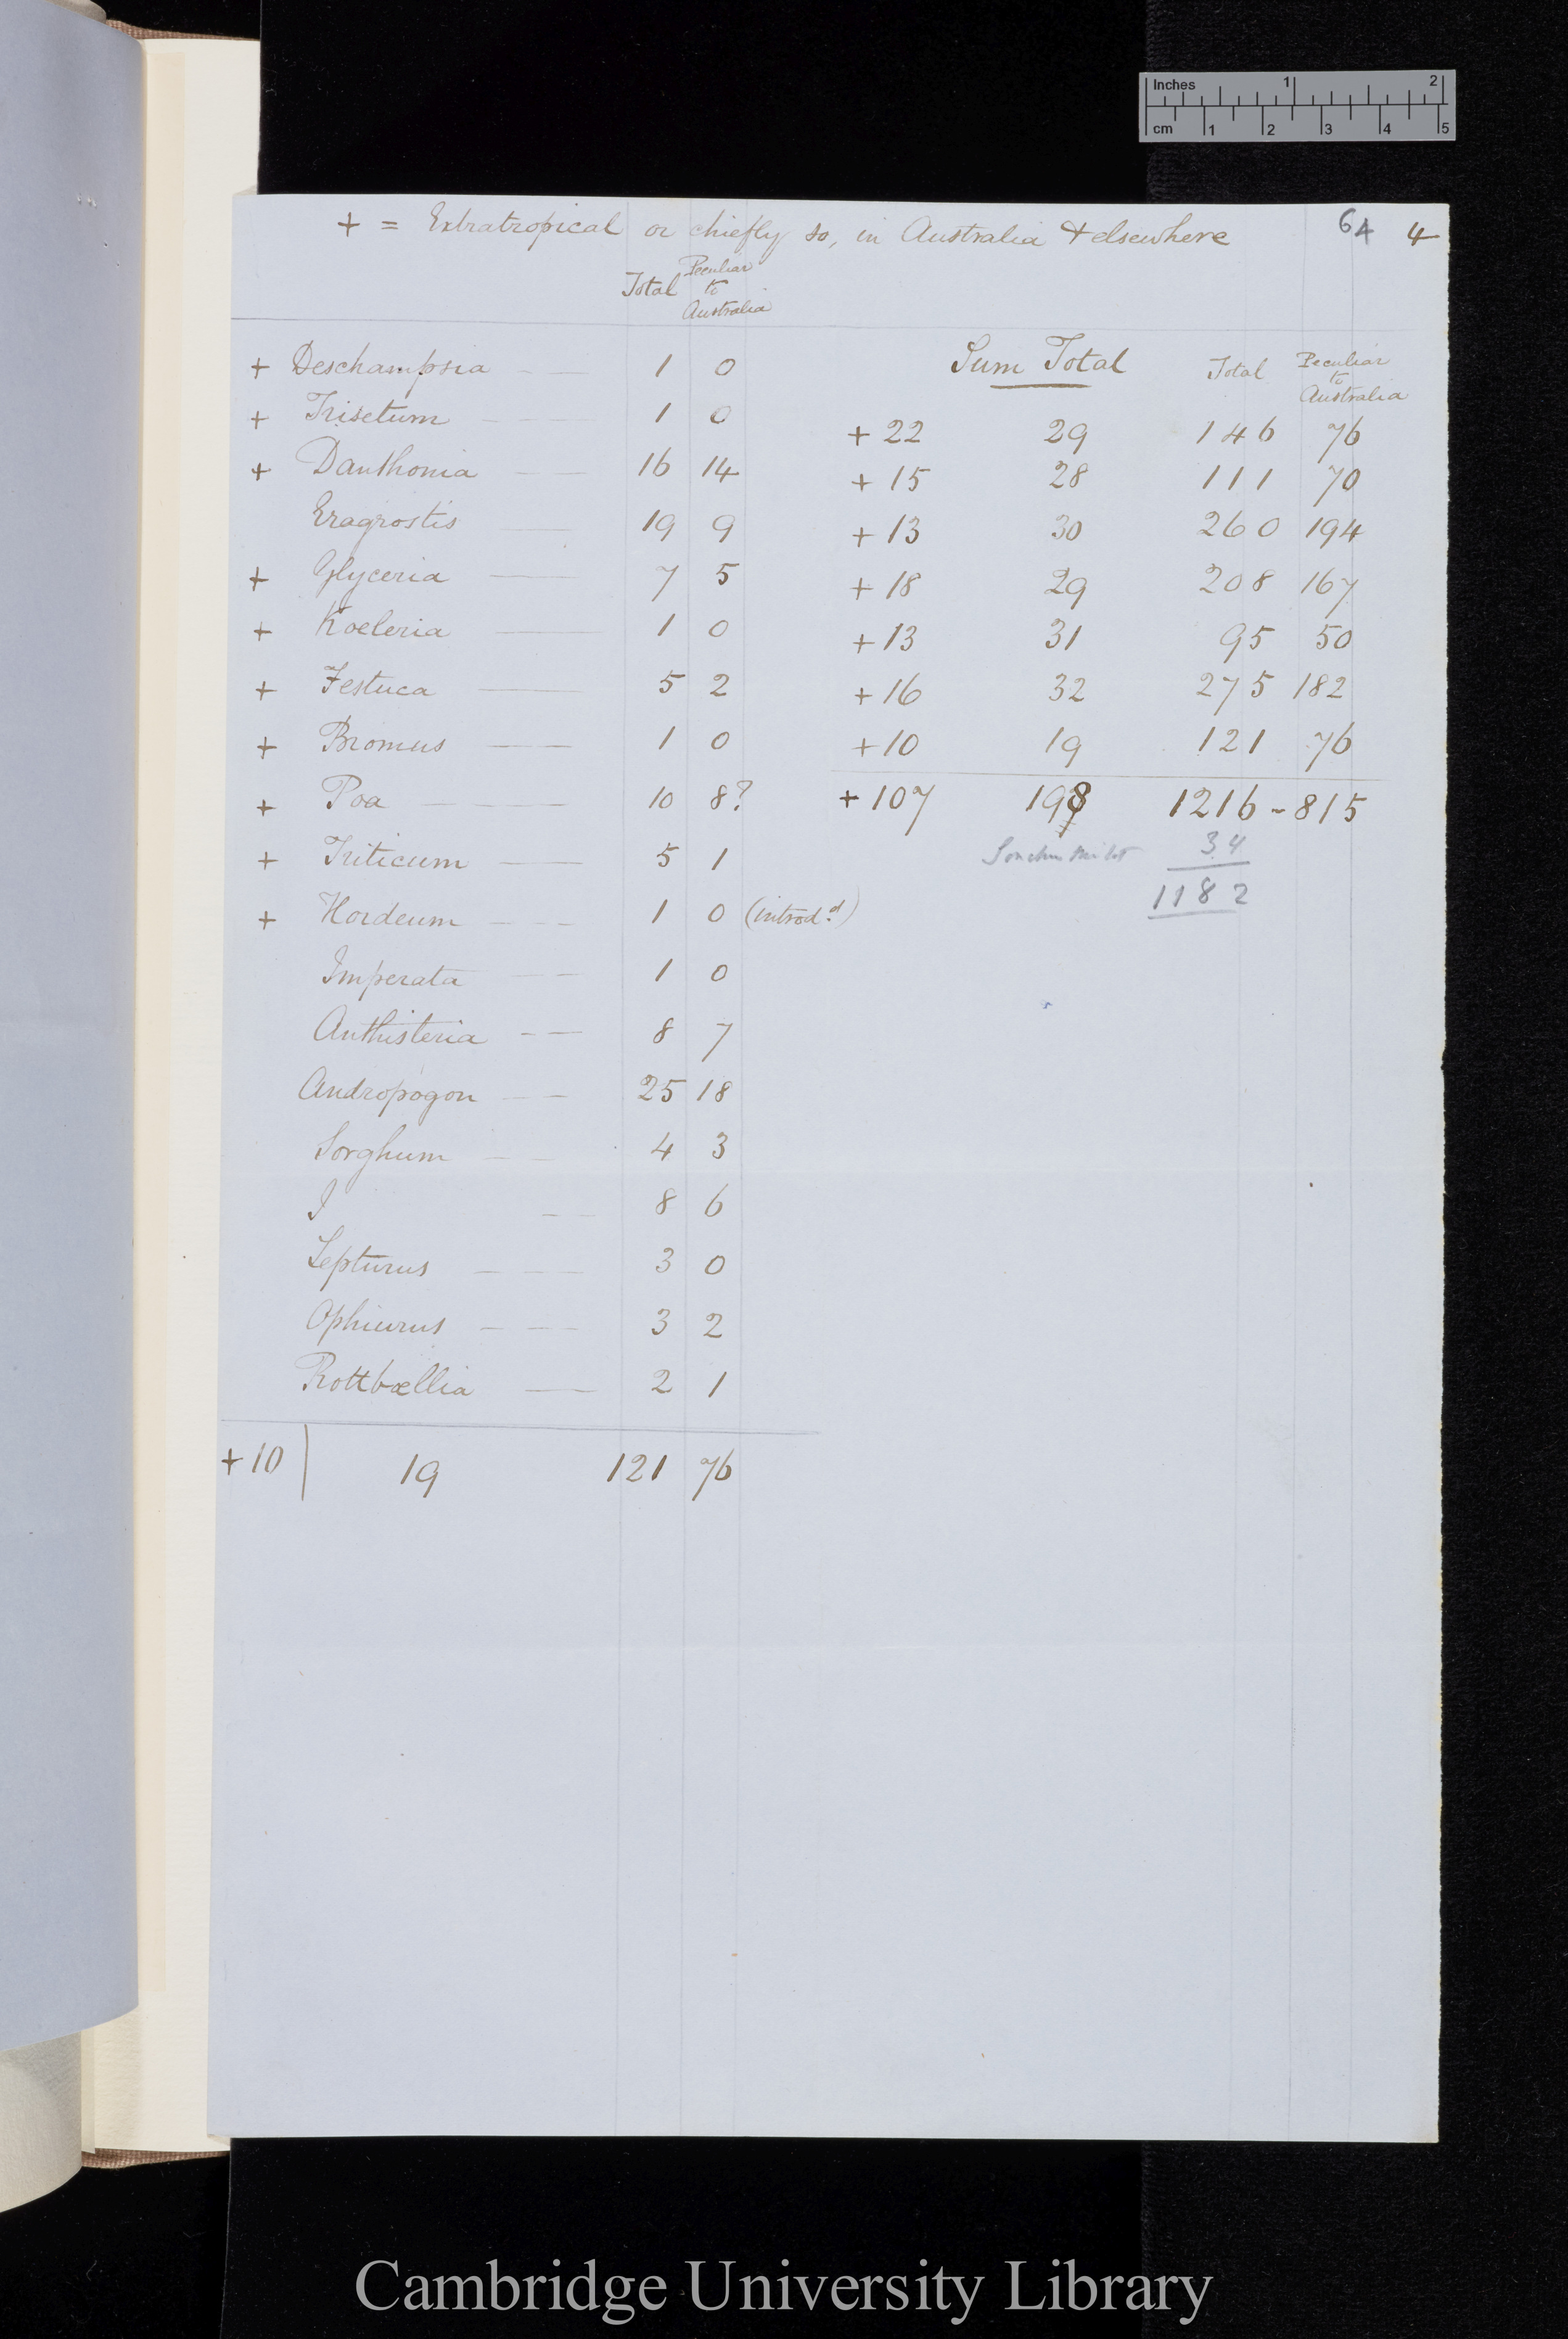 Inches 1 2
cm 1 2 3 4 5
+ = Extratropical or chiefly so, in Australia & elsewhere 64 4
Total Peculiar to Australia
+ Deschampsia 1 0
+ Trisetum 1 0
+ Danthonia 16 14
Eragrostis 19 9
+ Glyceria 7 5
+ Koeleria 1 0
+ Festuca 5 2
+ Bromus 1 0
+ Poa 10 8?
+ Triticum 5 1
+ Hordeum 1 0 (introd.d)
Imperata 1 0
Anthisteria 8 7
Andropogon 25 18
Sorghum 4 3
I 8 6
Lepturus 3 0
Ophiurus 3 2
Rottbœllia 2 1
+10 19 121 76
Sum Total Total Peculiar to Australia
+ 22 29 146 76
+ 15 28 111 70
+ 13 30 260 194
+ 18 29 208 167
+ 13 31 95 50
+ 16 32 275 182
+10 19 121 76
+ 107 198 1216 - 815
34
1182
Cambridge University Library